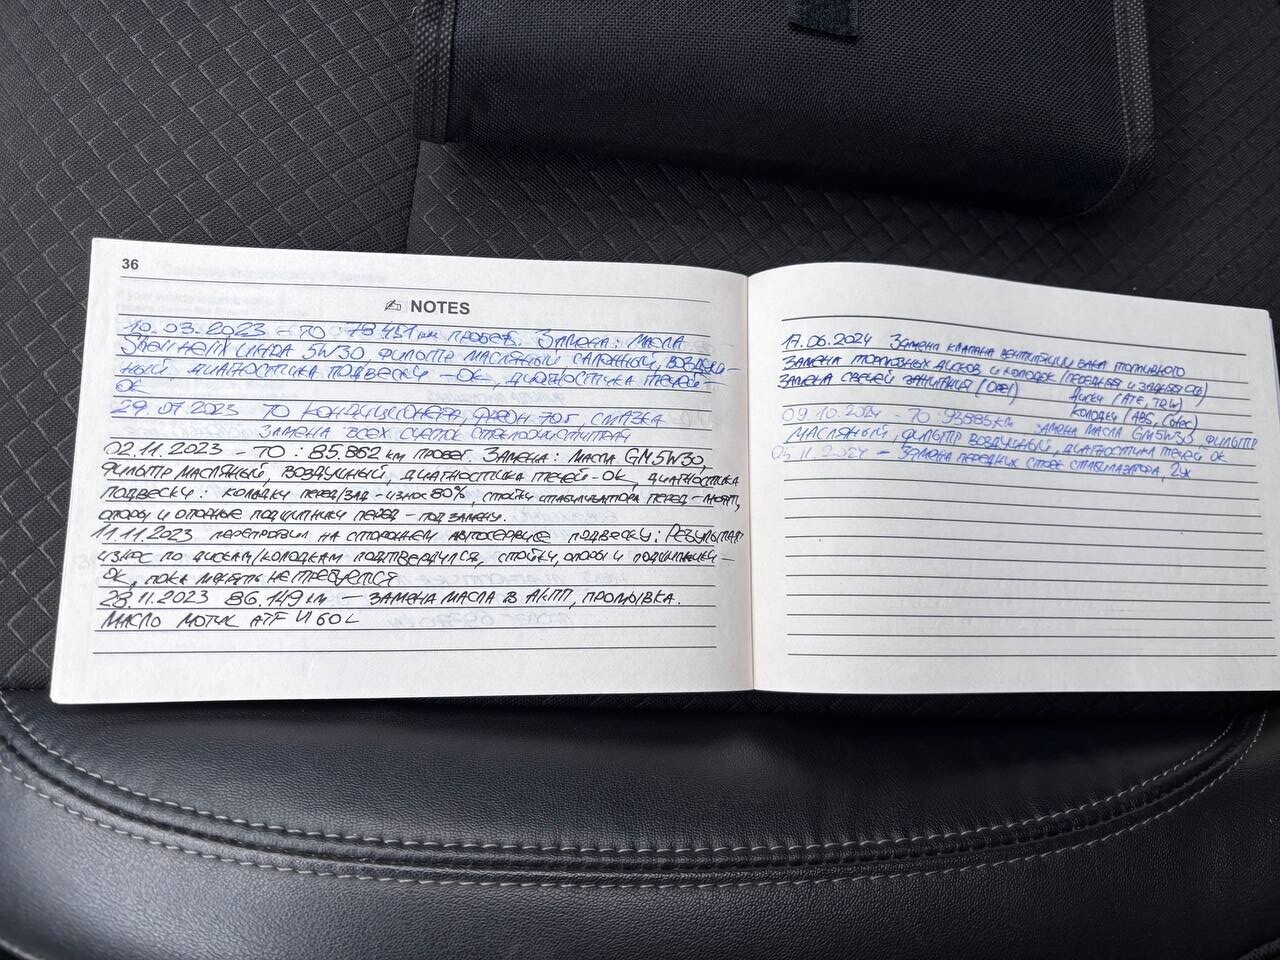 36
NOTES
10.03.2023 - ТО : 78 451 км пробег. Замена: масла
Shell Helix Ultra 5W30, фильтр масляный, салонный, воздуш-
ный, диагностика подвески - ОК, диагностика течей -
ОК
29.07.2023 ТО кондиционера, фреон 70г, смазка
Замена всех щеток стеклоочистителя
02.11.2023 - ТО : 85.862 км пробег. Замена: масла GM5W30,
фильтр масляный, воздушный, диагностика течей - ОК, диагностика
подвески: колодки перед/зад - износ 80%, стойки стабилизатора перед - люфт,
опоры и опорные подшипники перед - под замену.
11.11.2023 перепроверил на стороннем автосервисе подвеску: Результат
износ по дискам/колодкам подтвердился, стойки, опоры и подшипники -
ОК, пока менять не требуется
28.11.2023 86.149 км - замена масла в АКПП, промывка.
Масло Мотул ATF VI 60L
17.06.2024 Замена клапана вентиляции бака топливного
Замена тормозных дисков и колодок (передняя и задняя ось)
Замена свечей зажигания (Opel) Диски (ATE, TRW)
Колодки (ABS,
09.10.2024 - ТО 93885 км замена масла GM5W30 фильтр
масляный, фильтр воздушный, диагностика течей ок
05.11.2024 - Замена передних стоек стабилизатора, 2х